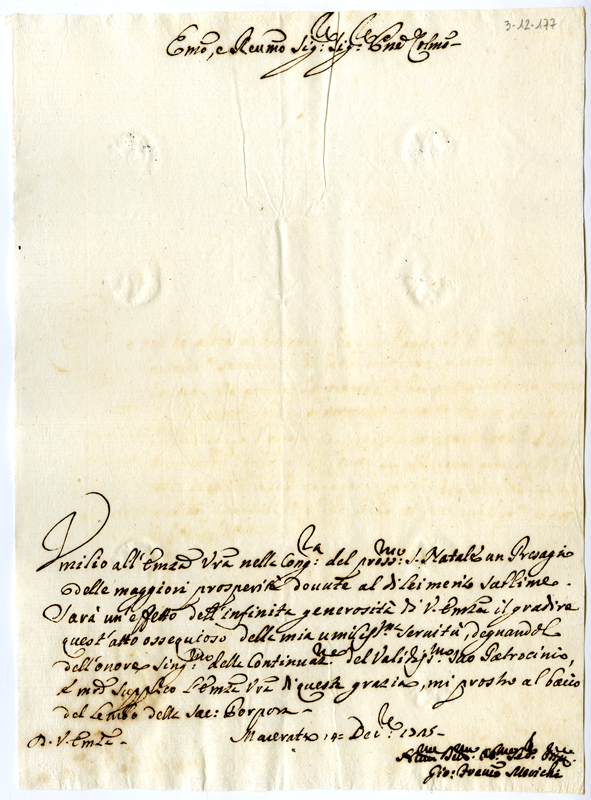 3-12-177
Emo, e Reumo Sig:re Sig:re Pne Colmo
Vmilio all'Emza Vra nella Cong:ra del pross:mo S. Natale un Presagio
delle maggiori prosperità douute al di lei merito sublime.
Sarà un effetto dell'infinita generosità di V. Emza il gradire
quest'atto ossequioso della mia umiliss:ma Seruitù, degnandola
dell'onore sing:mo della Continuaz:ne del Valid:mo suo Patrocinio,
supplico l'Emza Vra di questa grazia, mi prostro al bacio
del Lembo della Sac: Porpora
D. V. Emza
Macerata Dec:re
Gio: